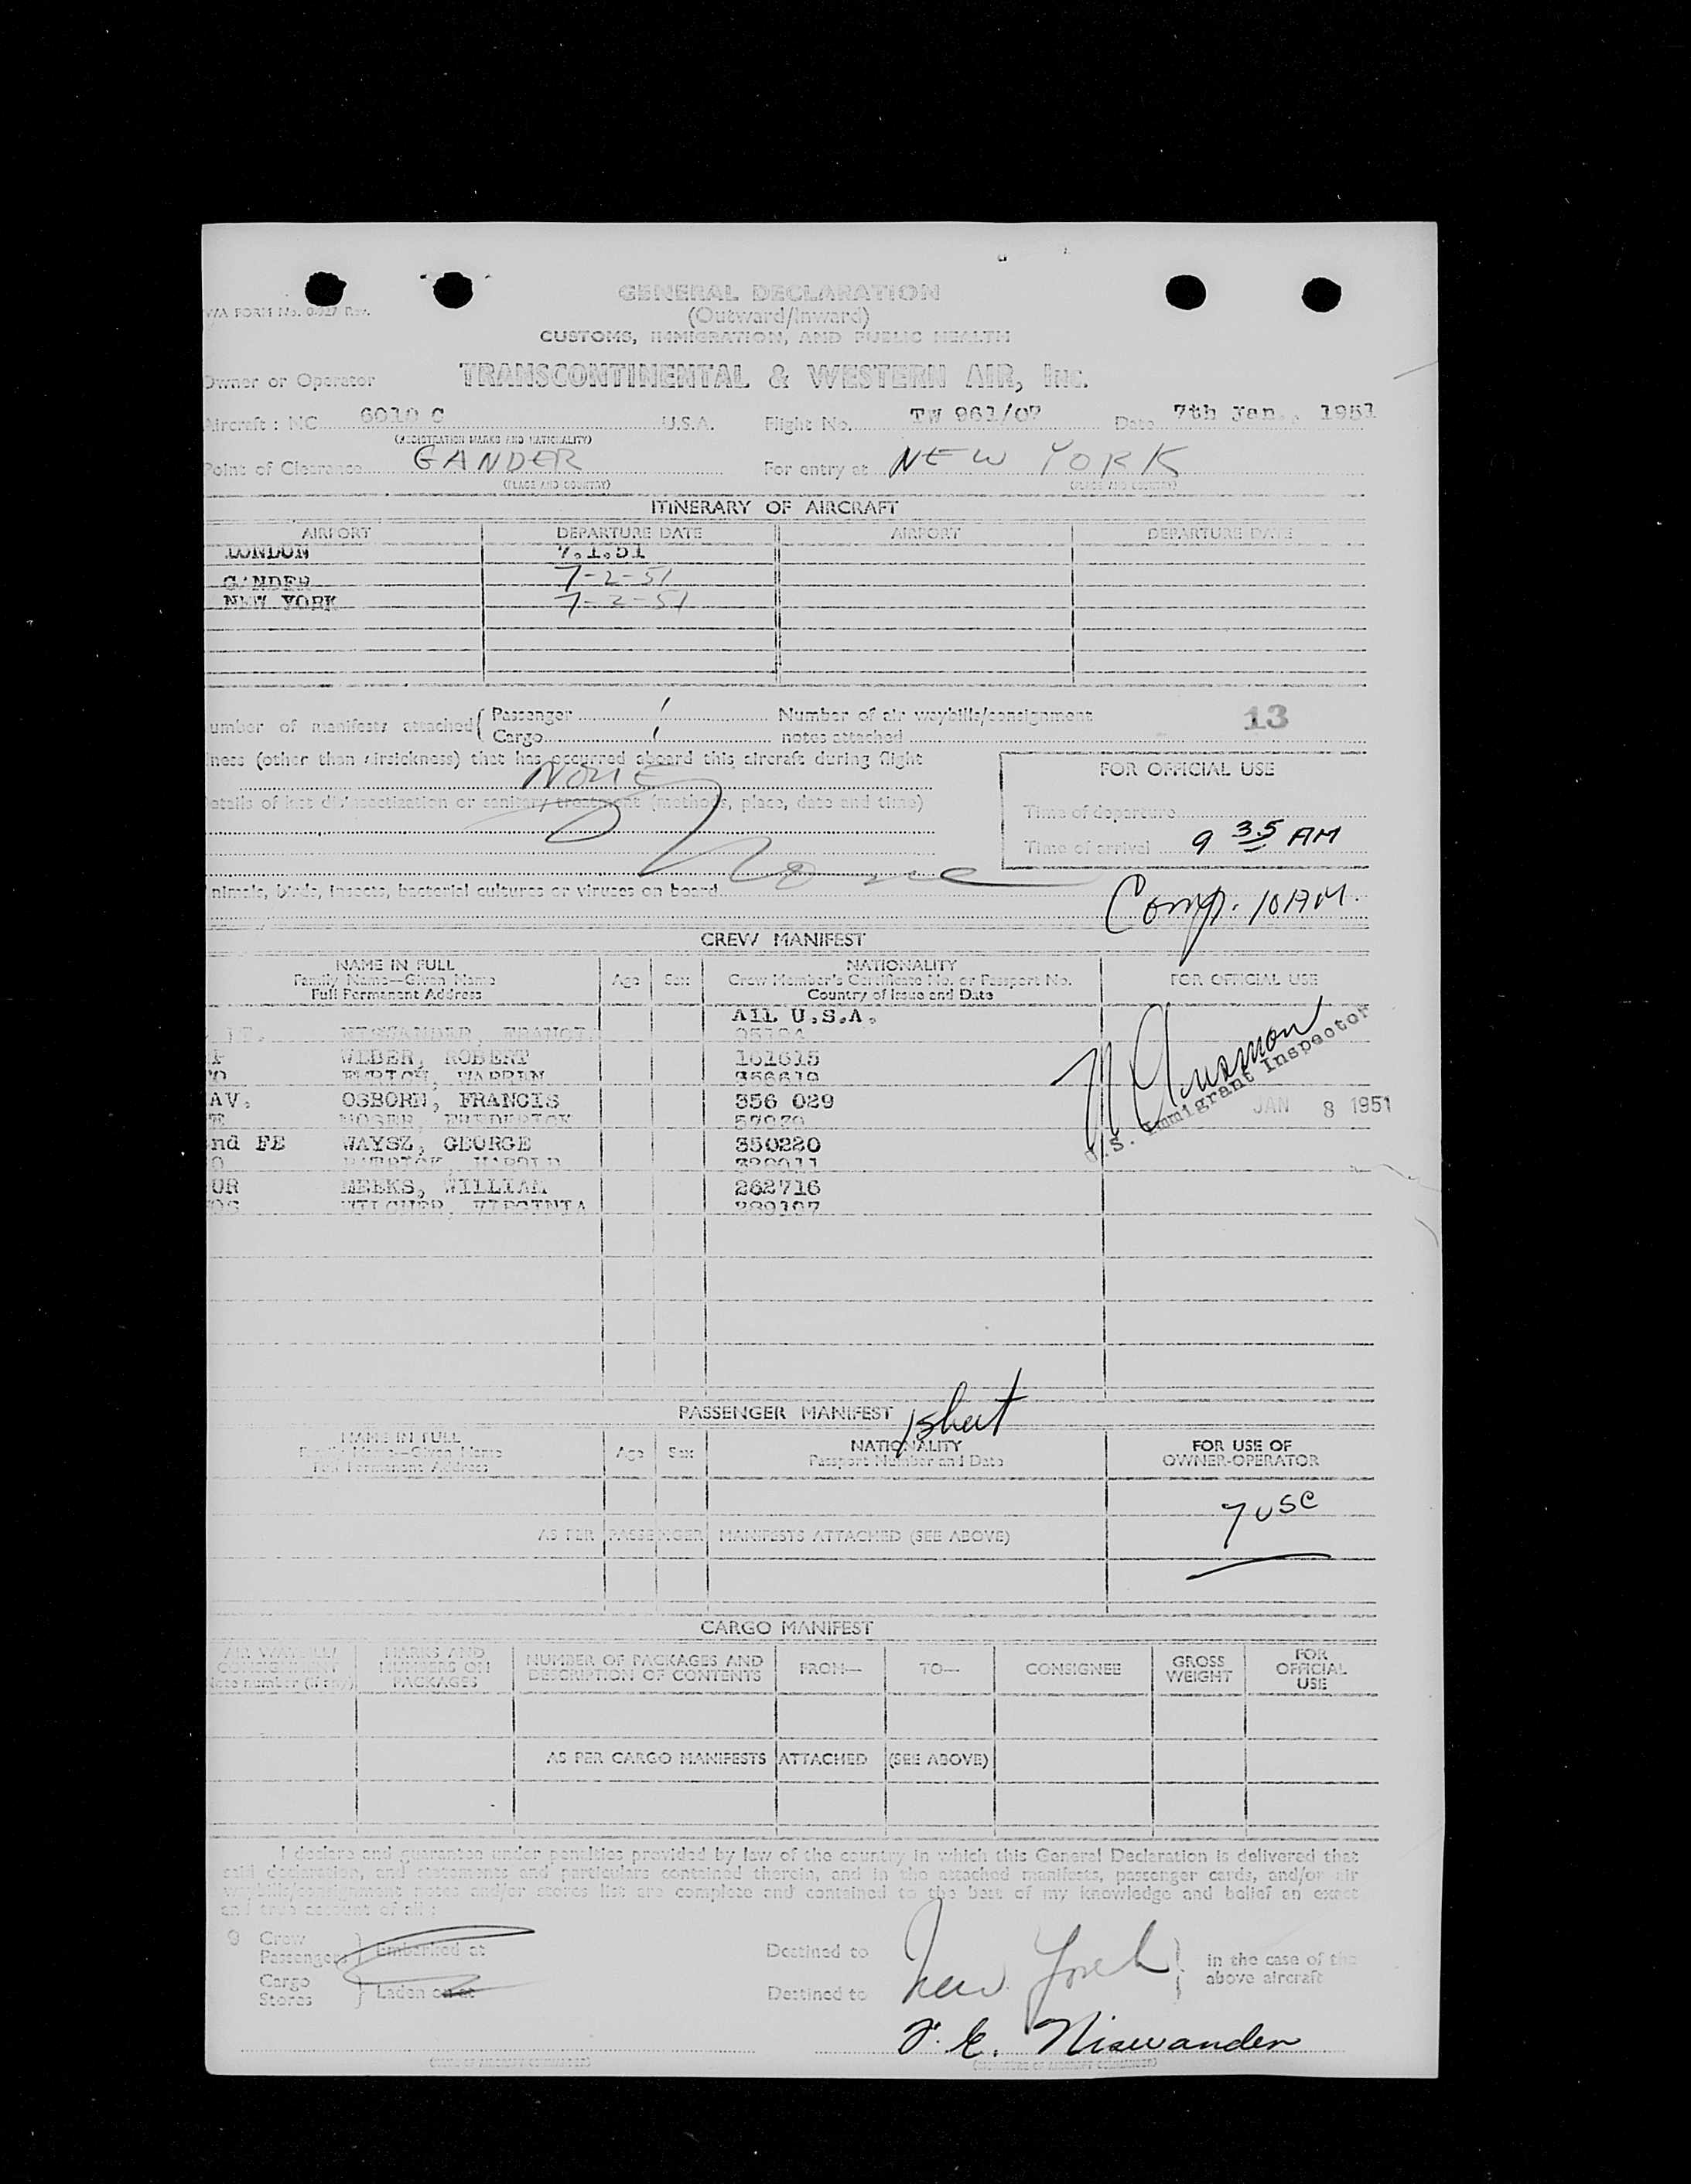 GENERAL DECLARATION
WA FORM No. 0-027 Rev.
(Outward/Inward)
CUSTOMS, IMMIGRATION, AND PUBLIC HEALTH
Owner or Operator TRANSCONTINENTAL & WESTERN AIR, Inc.
Aircraft : NC 6010 C U.S.A. Flight No. TW 961/07 Date 7th Jan., 1951
(REGISTRATION MARKS AND NATIONALITY)
Point of Clearance GANDER For entry at NEW YORK
(PLACE AND COUNTRY) (PLACE AND COUNTRY)
ITINERARY OF AIRCRAFT
AIRPORT DEPARTURE DATE AIRPORT DEPARTURE DATE
LONDON 7.1.51
GANDER 7-2-51
NEW YORK 7-2-51
umber of manifests attached { Passenger 1 Number of air waybills/consignment 13
Cargo 1 notes attached
lness (other than airsickness) that has occurred aboard this aircraft during flight
NONE
FOR OFFICIAL USE
etails of last disinsectization or sanitary treatment (methods, place, date and time)
Time of departure
Time of arrival 9 35 AM
None
nimals, birds, insects, bacterial cultures or viruses on board
Comp. 10 AM.
CREW MANIFEST
NAME IN FULL
Family Name—Given Name
Full Permanent Address
Age Sex
NATIONALITY
Crew Member's Certificate No. or Passport No.
Country of Issue and Date
FOR OFFICIAL USE
All U.S.A.
NISWANDER, FRANCI
WILBER, ROBERT 161615
BURTON, WARREN 356619
AV. OSBORN, FRANCIS 356 029
E MOSER, FREDERICK 57930
nd FE WAYSZ, GEORGE 350220
O HAROLD
UR MEEKS, WILLIAM 262716
OS WILCHER, VIRGINIA 289197
U.S. Immigrant Inspector
JAN 8 1951
PASSENGER MANIFEST 1 sheet
NAME IN FULL
Family Name—Given Name
Full Permanent Address
Age Sex
NATIONALITY
Passport Number and Date
FOR USE OF
OWNER-OPERATOR
7 USC
AS PER PASSENGER MANIFESTS ATTACHED (SEE ABOVE)
CARGO MANIFEST
AIR WAYBILL/
CONSIGNMENT
Note number (if any)
MARKS AND
NUMBERS ON
PACKAGES
NUMBER OF PACKAGES AND
DESCRIPTION OF CONTENTS
FROM—
TO—
CONSIGNEE
GROSS
WEIGHT
FOR
OFFICIAL
USE
AS PER CARGO MANIFESTS ATTACHED (SEE ABOVE)
I declare and guarantee under penalties provided by law of the country in which this General Declaration is delivered that
said declaration, and statements and particulars contained therein, and in the attached manifests, passenger cards, and/or air
waybills/consignment notes and/or stores list are complete and contained to the best of my knowledge and belief an exact
and true account of all :
9 Crew
Passengers } Embarked at Destined to New York } in the case of the
Cargo above aircraft
Stores } Laden on at Destined to
F. E. Niswander
(SIGNATURE OF AIRCRAFT COMMANDER)